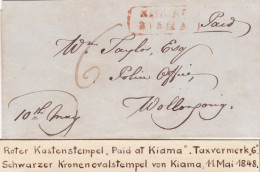 PAID AT
KIAMA
Paid
Wm Taylor, Esq
6
Police Office,
Wollongong
10th May
Roter Kastenstempel „Paid at Kiama". Taxvermerk „6"
Schwarzer Kronenovalstempel von Kiama, 11 Mai 1848.